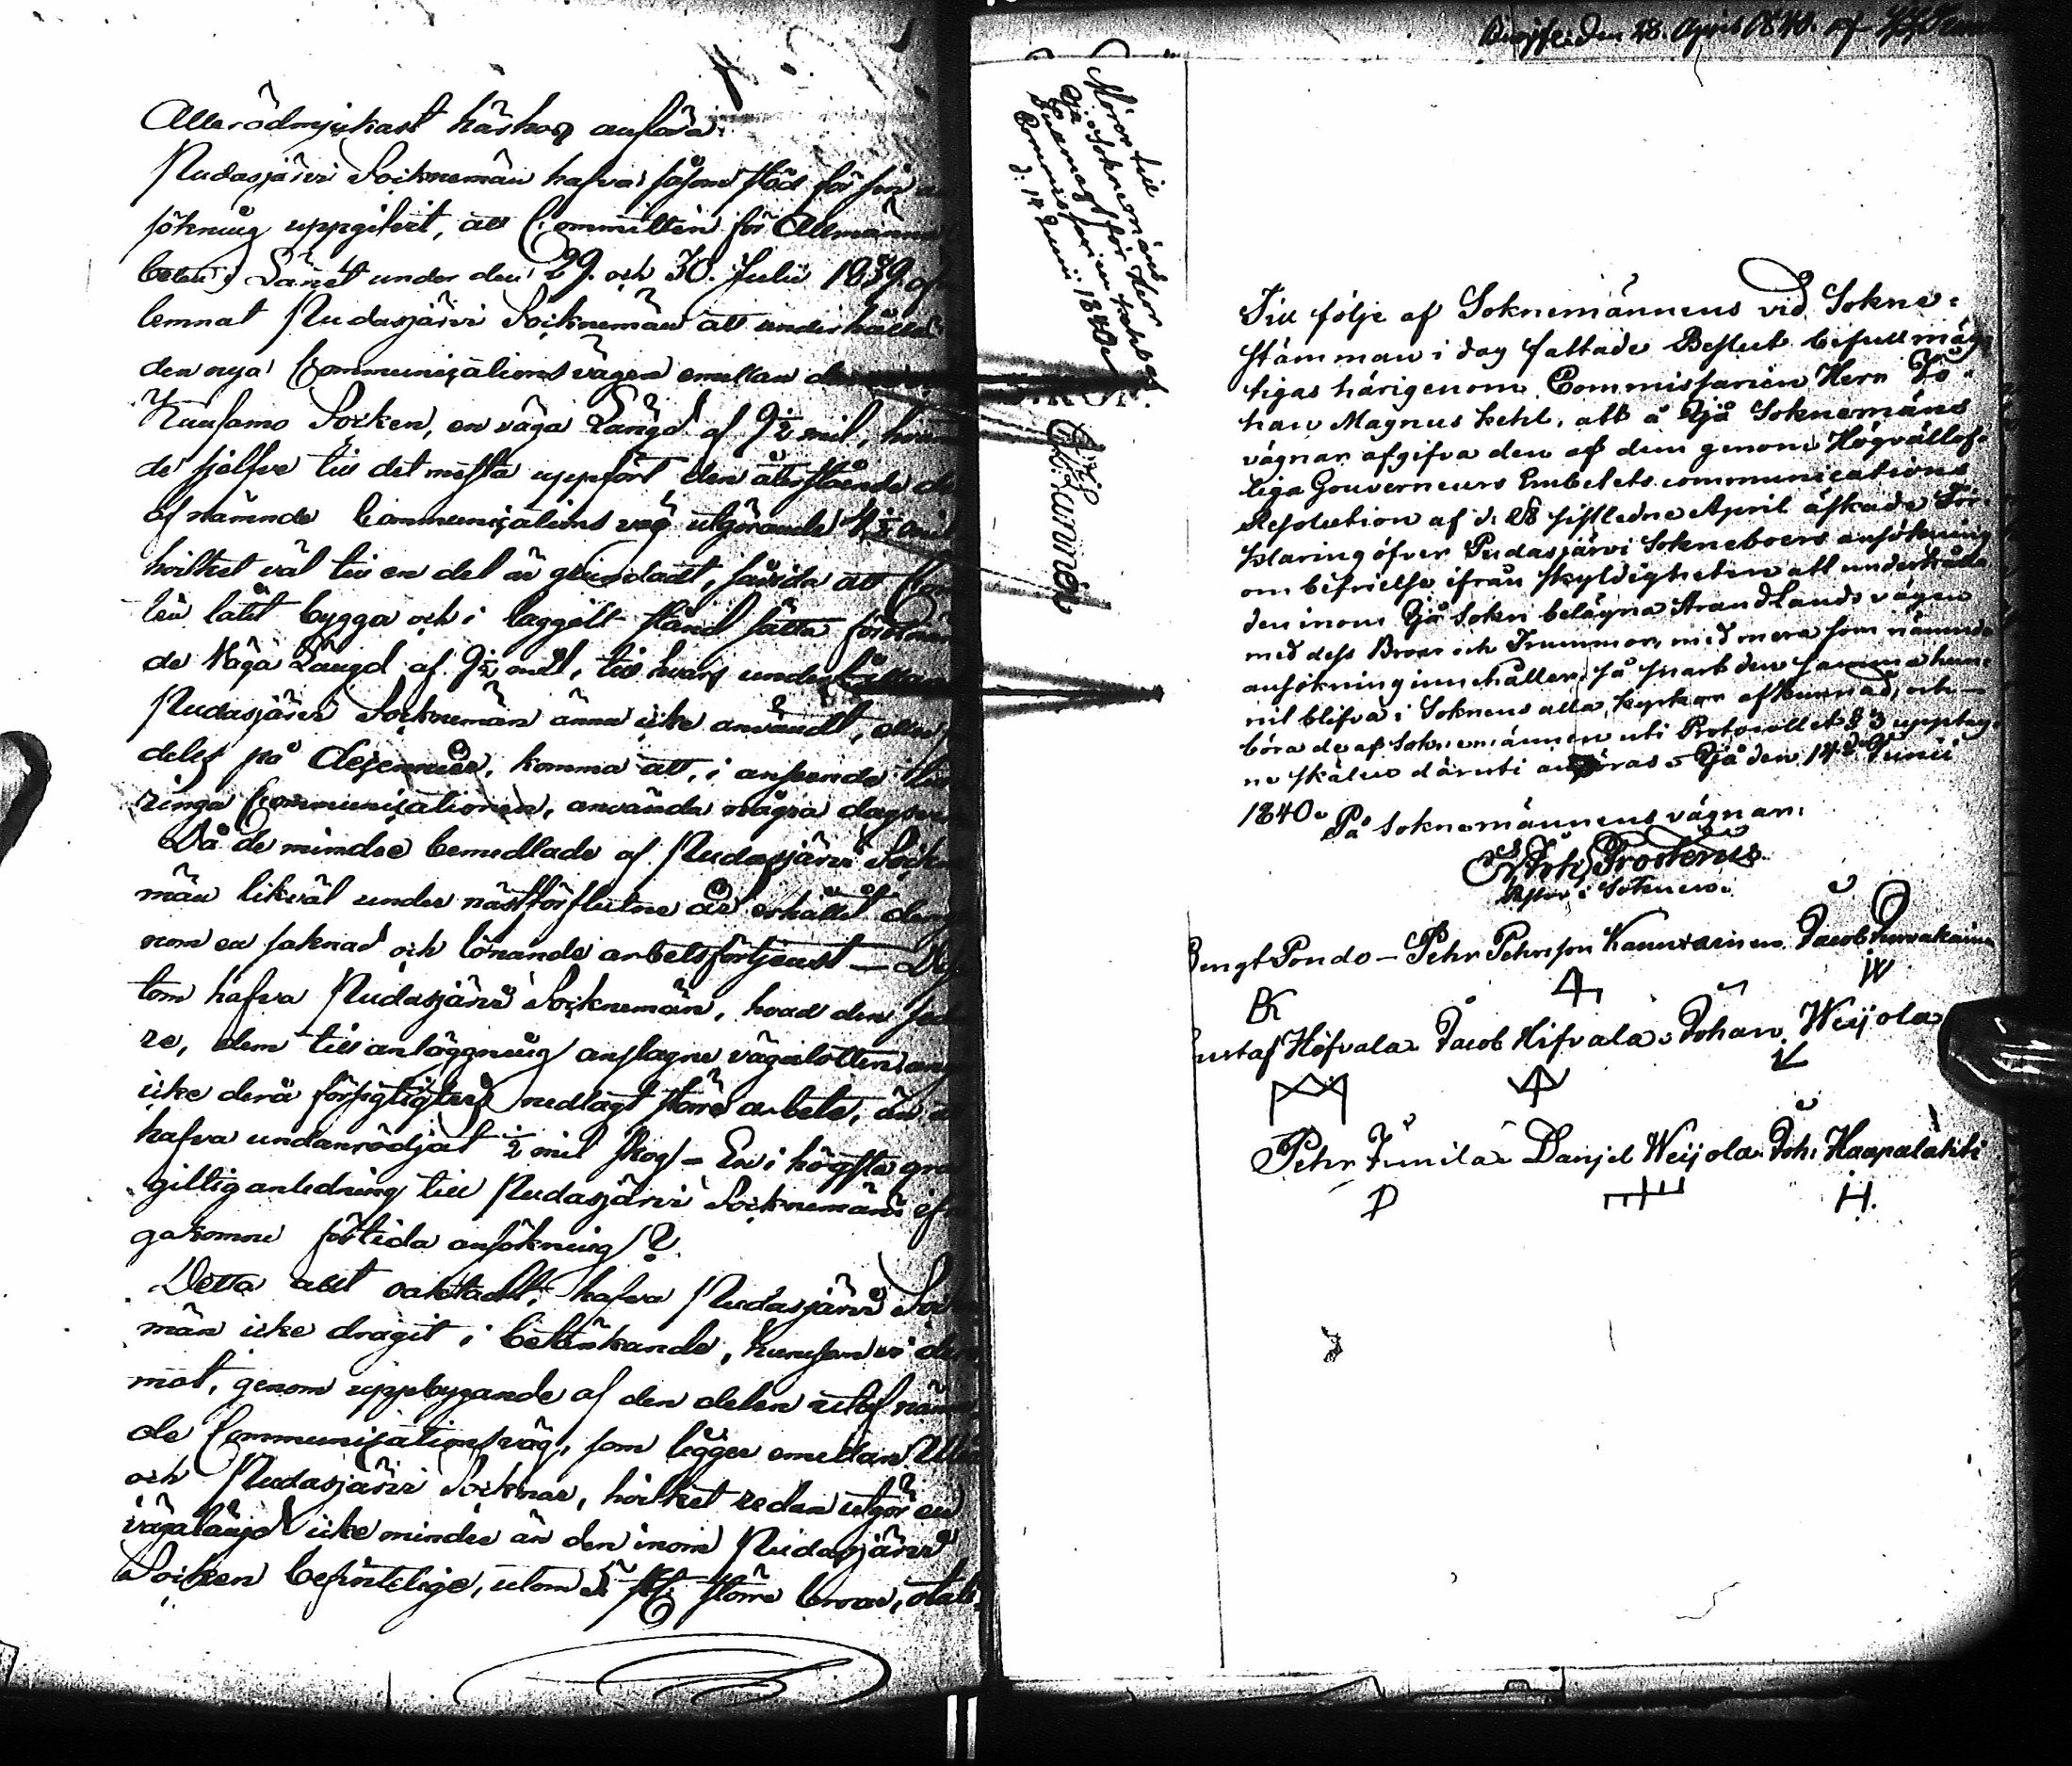 Allerödmjukast härhos anföra:
Pudasjärvi Sockneman hafva såsom stöd för sin an
sökning uppgifvit, att Committén för Allmänna
beten i Länet under den 29. och 30. Julii 1839. öf
lemnat Pudasjärvi Socknemän att underhålla
den nya Communications vägen emellan
Kuusamo Socken, en väga Längd af 9½ mil,
de sjelfve till det mesta uppfört den återstående de
af nämnde Communications väg utgörande 4½ mil
hvilket väl till en del är grundadt, såvida att Com
tén låtit bygga och i laggilt stånd sätta förenäm
de Väga Längd af 9½ mil, till hvars underhållan
Pudasjärvi Socknemän ännu icke användt, eller
deles på decennier, komma att, i anseende till
ringa Communicationen, använda några dagsver
Då de mindre bemedlade af Pudasjärvi Sockne
män likväl under nästförflutne år erhållit deri
nom en saknad och lönande arbetsförtjenst — Dess
tom hafva Pudasjärvi Socknemän, hvad den sed
re, dem till anläggning anslagne vägalotten ang
icke derå försigtigtvis nedlagt större arbete, än at
hafva undanrödjat ½ mil skog — En i högsta gra
giltig anledning till Pudasjärvi Socknemäns ifrå
gakomne förtida ansökning?
Detta allt oaktadt, hafva Pudasjärvi Sockne
män icke dragit i betänkande, huruson vi der
mot, genom uppbyggande af den delen utaf nämn
de Communications väg, som ligger emellan
och Pudasjärvi Socknar, hvilket redan utgör en
vägalängd icke mindre än den inom Pudasjärvi
Socken befintelige, utom 5 st. större broar, otali
den 28. April 1840.
Hörer till
Ijå Soknemäns
Fullmagt för Herr
Commissarien Kehl af
d. 14 Junii 1840.
Till följe af Soknemännens vid Sokne-
stämman i dag fattade Beslut befullmäg-
tigas härigenom Commissarien Herr Jo-
han Magnus Kehl, att å Ijå Soknemäns
vägnar afgifva den af dem genom Högvällof-
liga Gouverneurs Embetets communications
Resolution af d. 28 sistledne April äskade För-
klaring öfver Pudasjärvi Sokneboers ansökning
om befrielse ifrån skyldigheten att underhålla
den inom Ijå Sokn belägna Strand Lands vägen
med dess Broar och Trummor, med mera som nämnde
ansökning innehåller, så snart den samma hun-
nit blifva i Soknens alla Kyrkor afkunnad, och —
böra de af Soknemännen uti Protocollet § 3 upptag-
ne skälen däruti anföras. Ijå den 14de Junii
1840. På Soknemännens vägnar:
Joh. Frosterus
Pastor i Soknen.
Bengt Pondo — Pehr Pehrsson Jacob
BK
Gustaf Höfvala. Jacob Hifvala. Johan Weijola
Pehr Junila. Danjel Weijola. Joh: Haapalahti
P H.